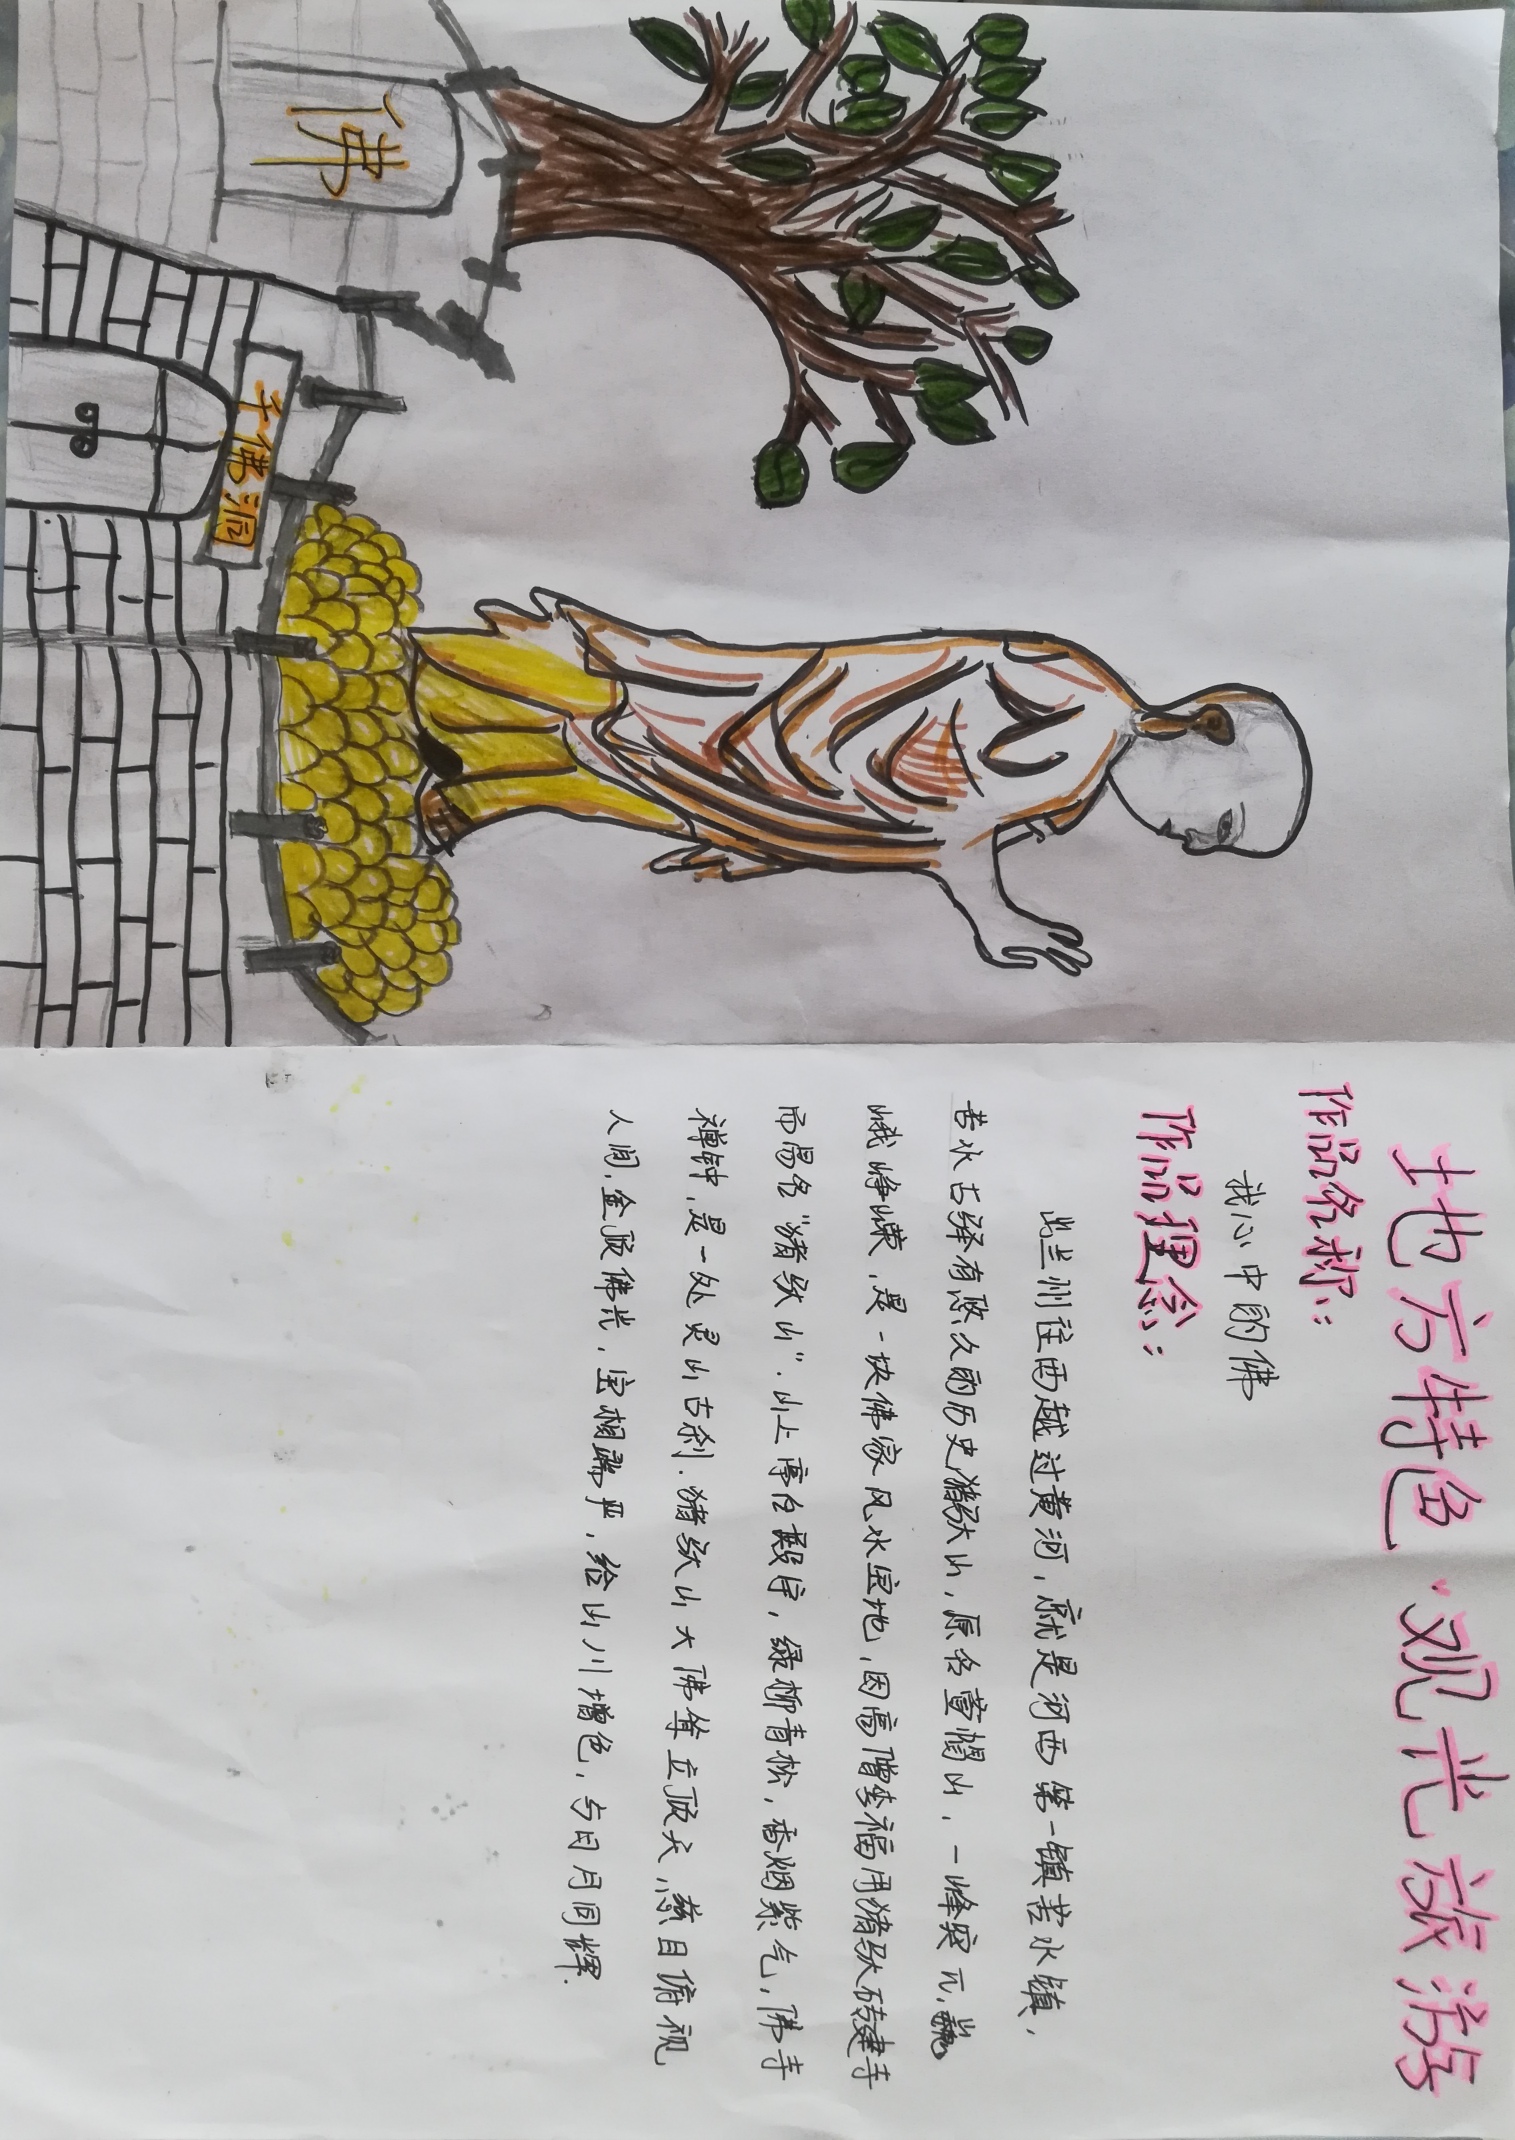 佛
千佛洞
地方特色·观光旅游
作品名称:
我心中的佛
作品理念:
兰州往西越过黄河,就是河西第一镇苦水镇,
苦水古驿有悠久的历史,猪驮山,原名萱帽山,一峰突兀,巍
峨峥嵘,是一块佛家风水宝地,因高僧李福用猪驮砖建寺
而得名"猪驮山".山上亭台殿宇,绿柳青松,香烟紫气,佛寺
禅钟,是一处灵山古刹.猪驮山大佛耸立顶天,慈目俯视
人间,金顶佛光,宝相严,给山川增色,与日月同辉.